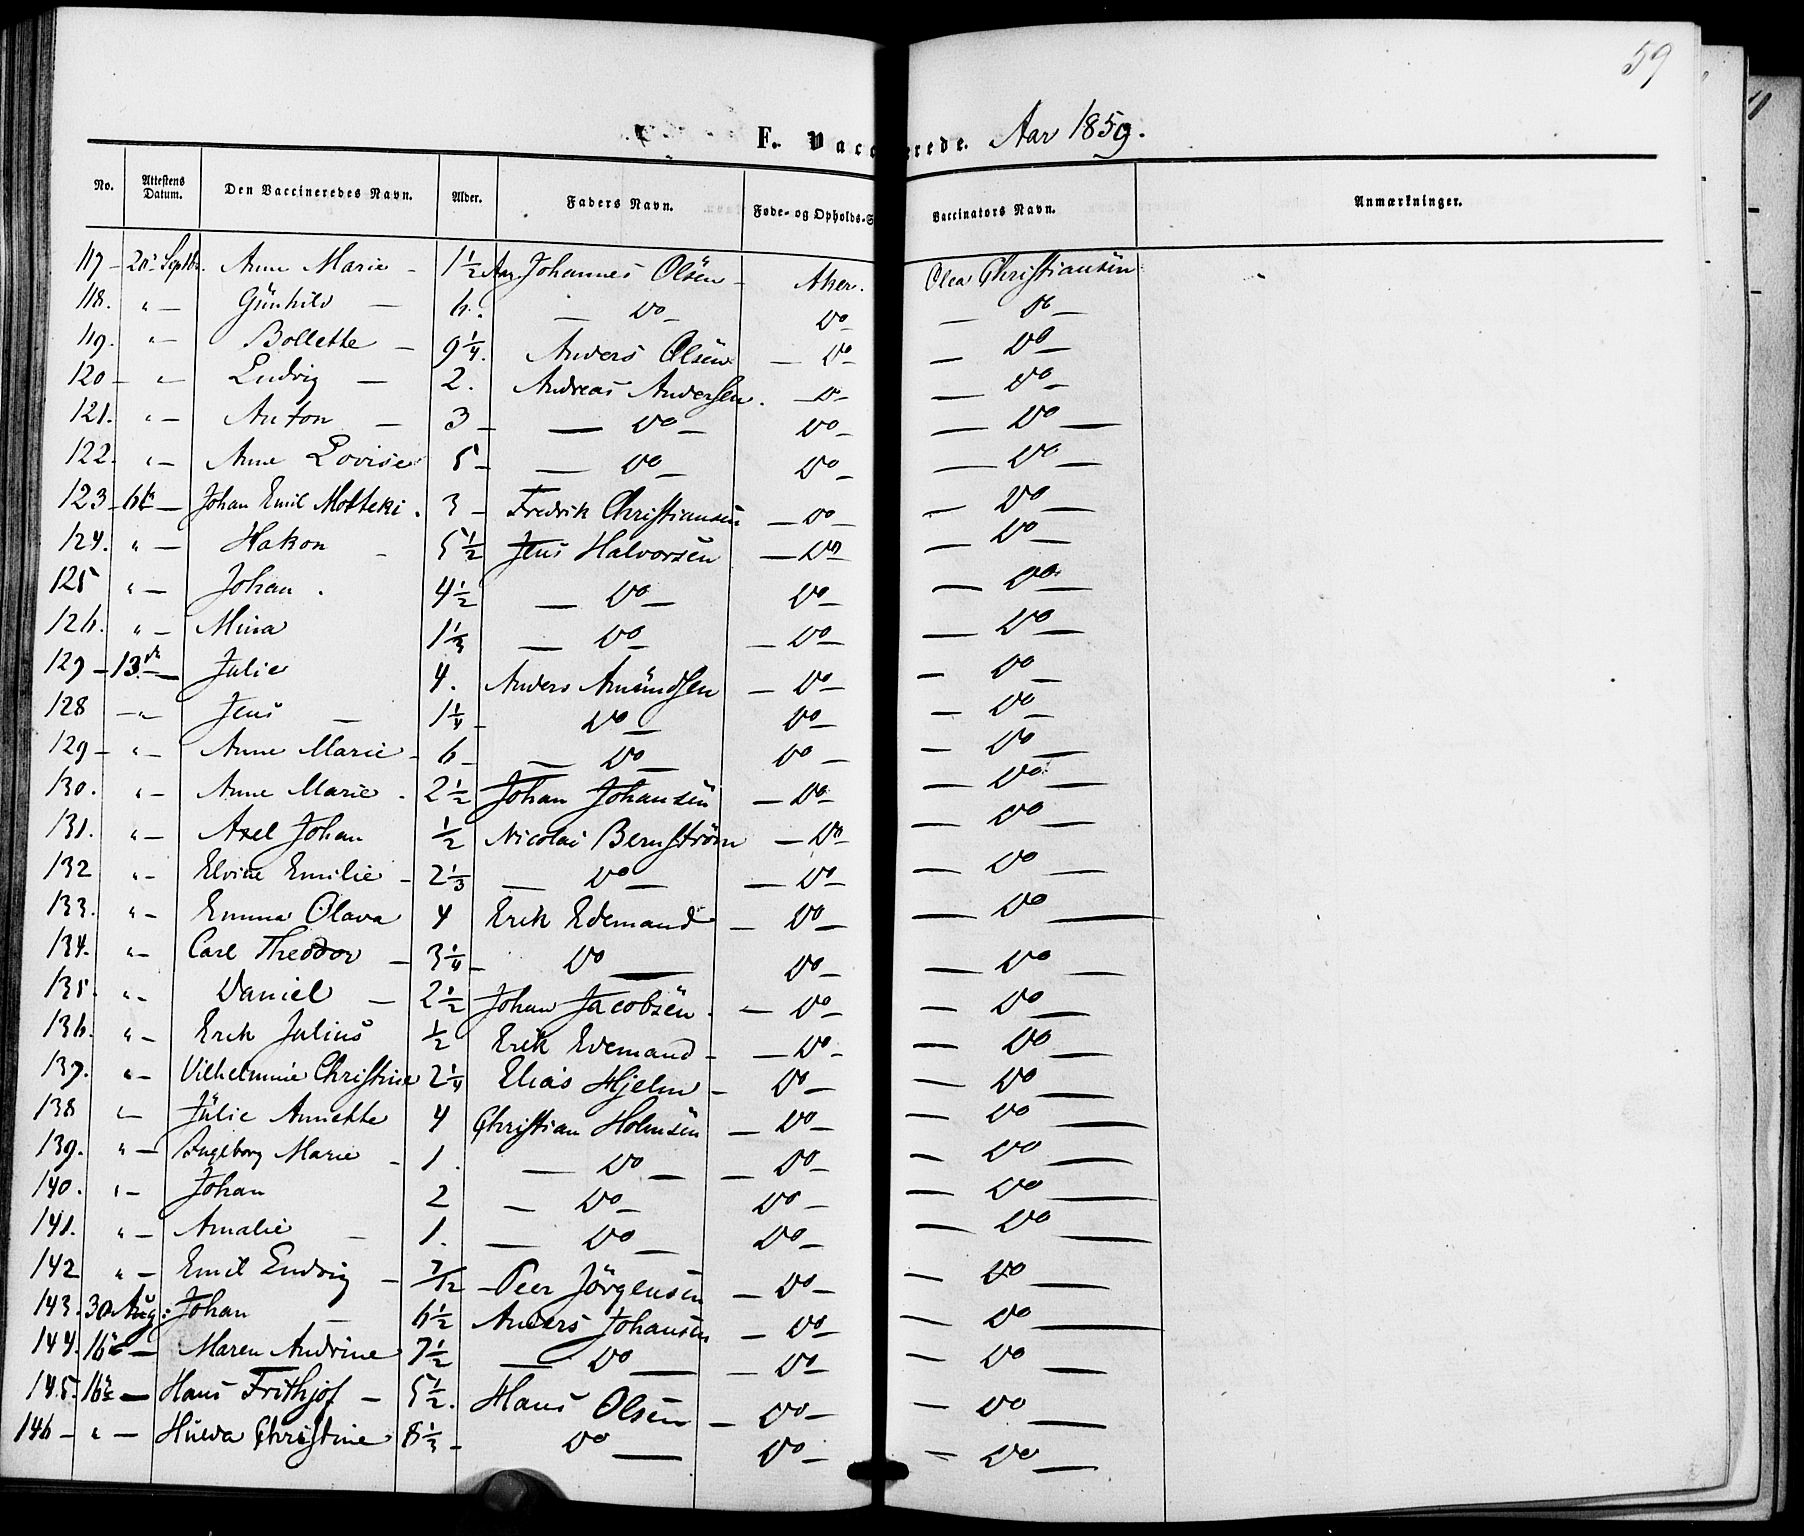 59
F. Vaccinerede. Aar 1859.
No. Attestens Datum. Den Vaccineredes Navn. Alder. Faders Navn. Føde- og Opholds-S Vaccinators Navn. Anmærkninger.
117 - Septbr. Anne Marie - 1½ Aar Johannes Olsen - Aker. Olea Christiansen
118. " - Gunhild - 6. - Do - Do - - Do -
119. " - Bollette - 9¼. Anders Olsen - Do - - Do -
120 - " - Ludvig - 2. Andreas Andersen. - Do - - Do -
121. " - Anton - 3 - - Do - Do - - Do -
122. " - Anne Lovise 5 - - Do - Do - - Do -
123 - 6te - Johan Emil 3 - Fredrik Christiansen - Do - - Do -
124. " - Hakon - 5½ Jens Halvorsen - Do - Do -
125 " - Johan. 4½ - Do - Do - - Do -
126. " - Mina 1⅓ - Do - - Do - - Do -
127 - 13de - Julie 4. Anders Amundsen - Do - - Do -
128 - " Jens - 1¼ - Do - Do - - Do -
129 - " - Anne Marie - 6 - - Do - Do - - Do -
130. " - Anne Marie. 2½ Johan Johansen - Do - - Do -
131. " - Axel Johan ½ Nicolai Bernström - Do - - Do -
132 " - Elvine Emilie - 2⅓ - Do - - Do - - Do -
133. " - Emma Olava 4 Erik Edemand - Do - - Do -
134. " - Carl Theodor - 3¼ - Do - Do - - Do -
135. " - Daniel - 2½ Johan Jacobsen. - Do - - Do -
136. " - Erik Julius ½ Erik Edemand - - Do - - Do -
137. " - Vilhelmine Christine 2¼ Elias Hjelm - Do - - Do -
138 " - Julie Annette 4 Christian Holmsen - Do - - Do -
139. " - Ingeborg Marie - 1. - Do - - Do - - Do -
140. " - Johan 2 - Do - Do - - Do -
141. " - Amalie - 1. - Do - Do - - Do -
142 " - Emil Ludvig - 7/12 - Peer Jörgensen - Do - - Do -
143. 30 Aug: Johan - 6½ Anders Johansen - Do - - Do -
144. 16 - Maren Andrine 7½ - Do - - Do - - Do -
145. 16 - Hans Frithjof - 5½. Hans Olsen - Do - - Do -
146 - " - Hulda Christine 8⅓ - Do - Do - - Do -